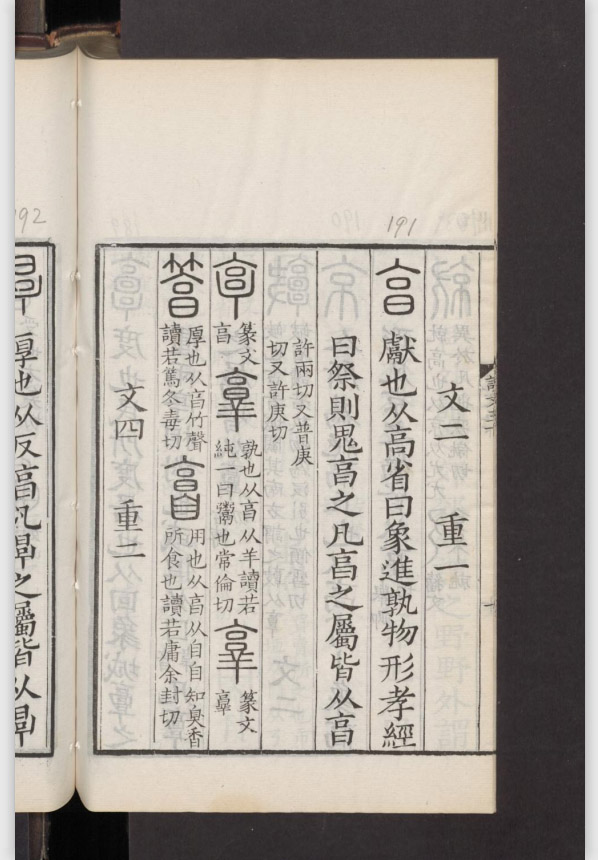 191
文二 重一
亯 獻也从高省曰象進孰物形孝經
曰祭則鬼亯之凡亯之屬皆从亯
許兩切又普庚
切又許庚切
篆文
亯
𦎫
孰也从亯从羊讀若
純一曰鬻也常倫切
篆文
𦎫
䈞
厚也从亯竹聲
讀若篤冬毒切
𠅩
用也从亯从自自知臭香
所食也讀若庸余封切
文四 重二
192
㫗 厚也从反亯凡㫗之屬皆从㫗